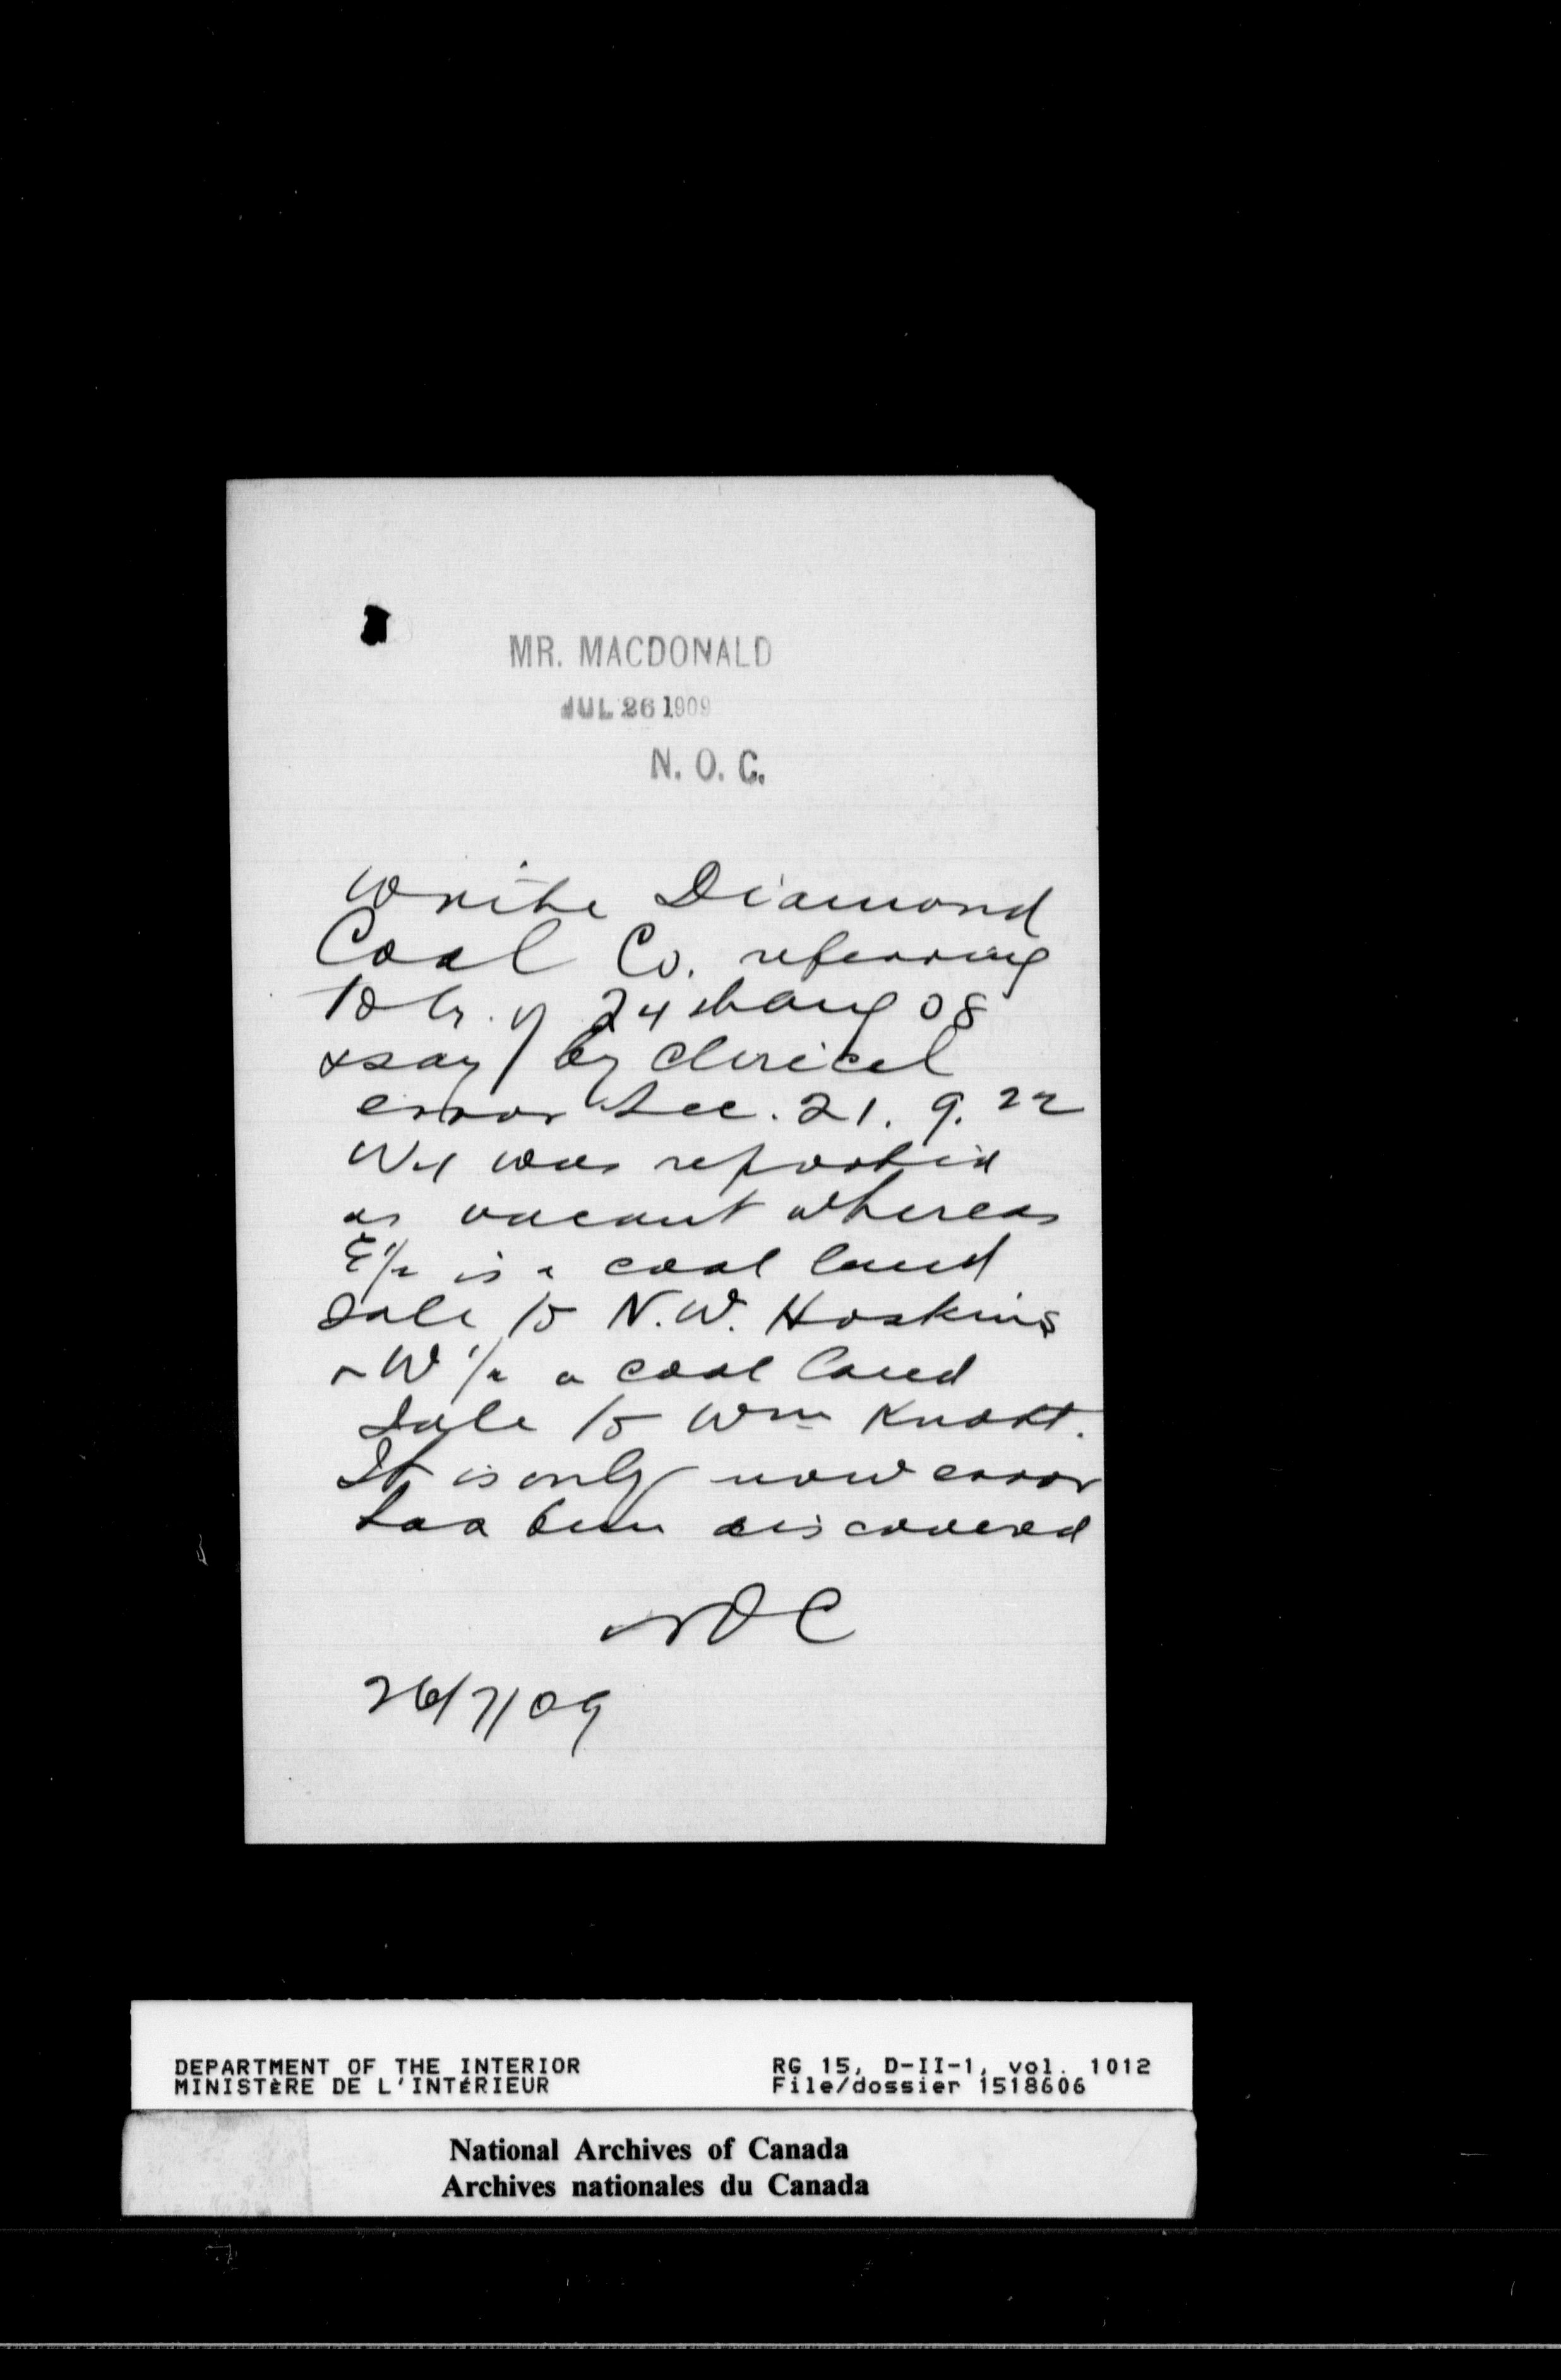 MR. MACDONALD
JUL 26 1909
N. O. C.
Write Diamond
Coal Co. referring
to lr. of 24 Aug 08
& say by clerical
error Sec. 21. 9. 22
W4 was reported
as vacant whereas
E 1/2 is a coal land
sale to N.W. Hoskins
& W 1/2 a coal land
sale to Wm Knott.
It is only now error
has been discovered
NOC
26/7/09
DEPARTMENT OF THE INTERIOR RG 15, D-II-1, vol. 1012
MINISTÈRE DE L'INTÉRIEUR File/dossier 1518606
National Archives of Canada
Archives nationales du Canada